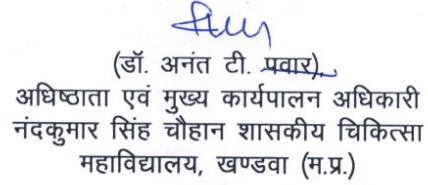 (डॉ. अनंत टी. पवार)
अधिष्ठाता एवं मुख्य कार्यपालन अधिकारी
नंदकुमार सिंह चौहान शासकीय चिकित्सा
महाविद्यालय, खण्डवा (म.प्र.)